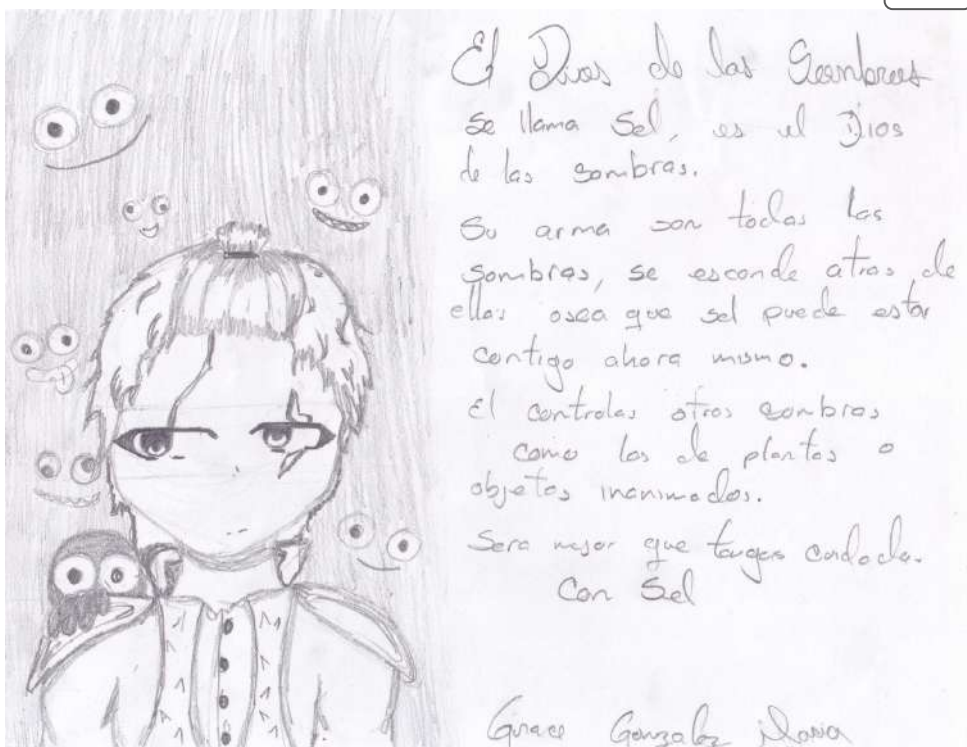 El Dios de las Sombras
se llama Sel, es el Dios
de las sombras.
Su arma son todas las
sombras, se esconde atras de
ellas osea que sel puede estar
contigo ahora mismo.
El controla otras sombras
como las de plantas o
objetos inanimados.
Sera mejor que tengas cuidado.
Con Sel
Grace Gonzalez Maria